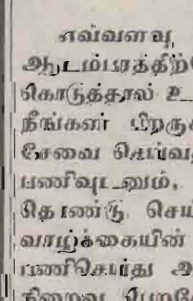 எவ்வளவு
ஆடம்பரத்திற்
கொடுத்தால் உ
நீங்கள் பிறருக்
சேவை செய்வத
பணிவுடனும்,
தொண்டு செய்
வாழ்க்கையின்
பணிசெய்து அ
நிறைவு பெறே